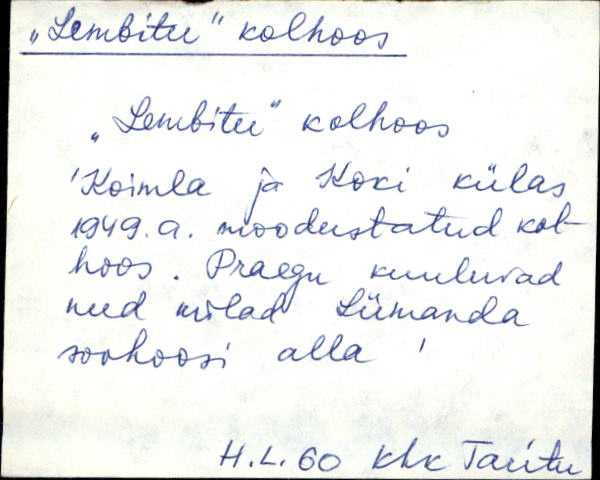 „Lembitu" kolhoos
„Lembitu" kolhoos
'Koimla ja Koki külas
1949. a. moodustatud kol-
hoos. Praegu kuuluvad
need külad Lümanda
sovhoosi alla'
H.L. 60 Khk Taritu